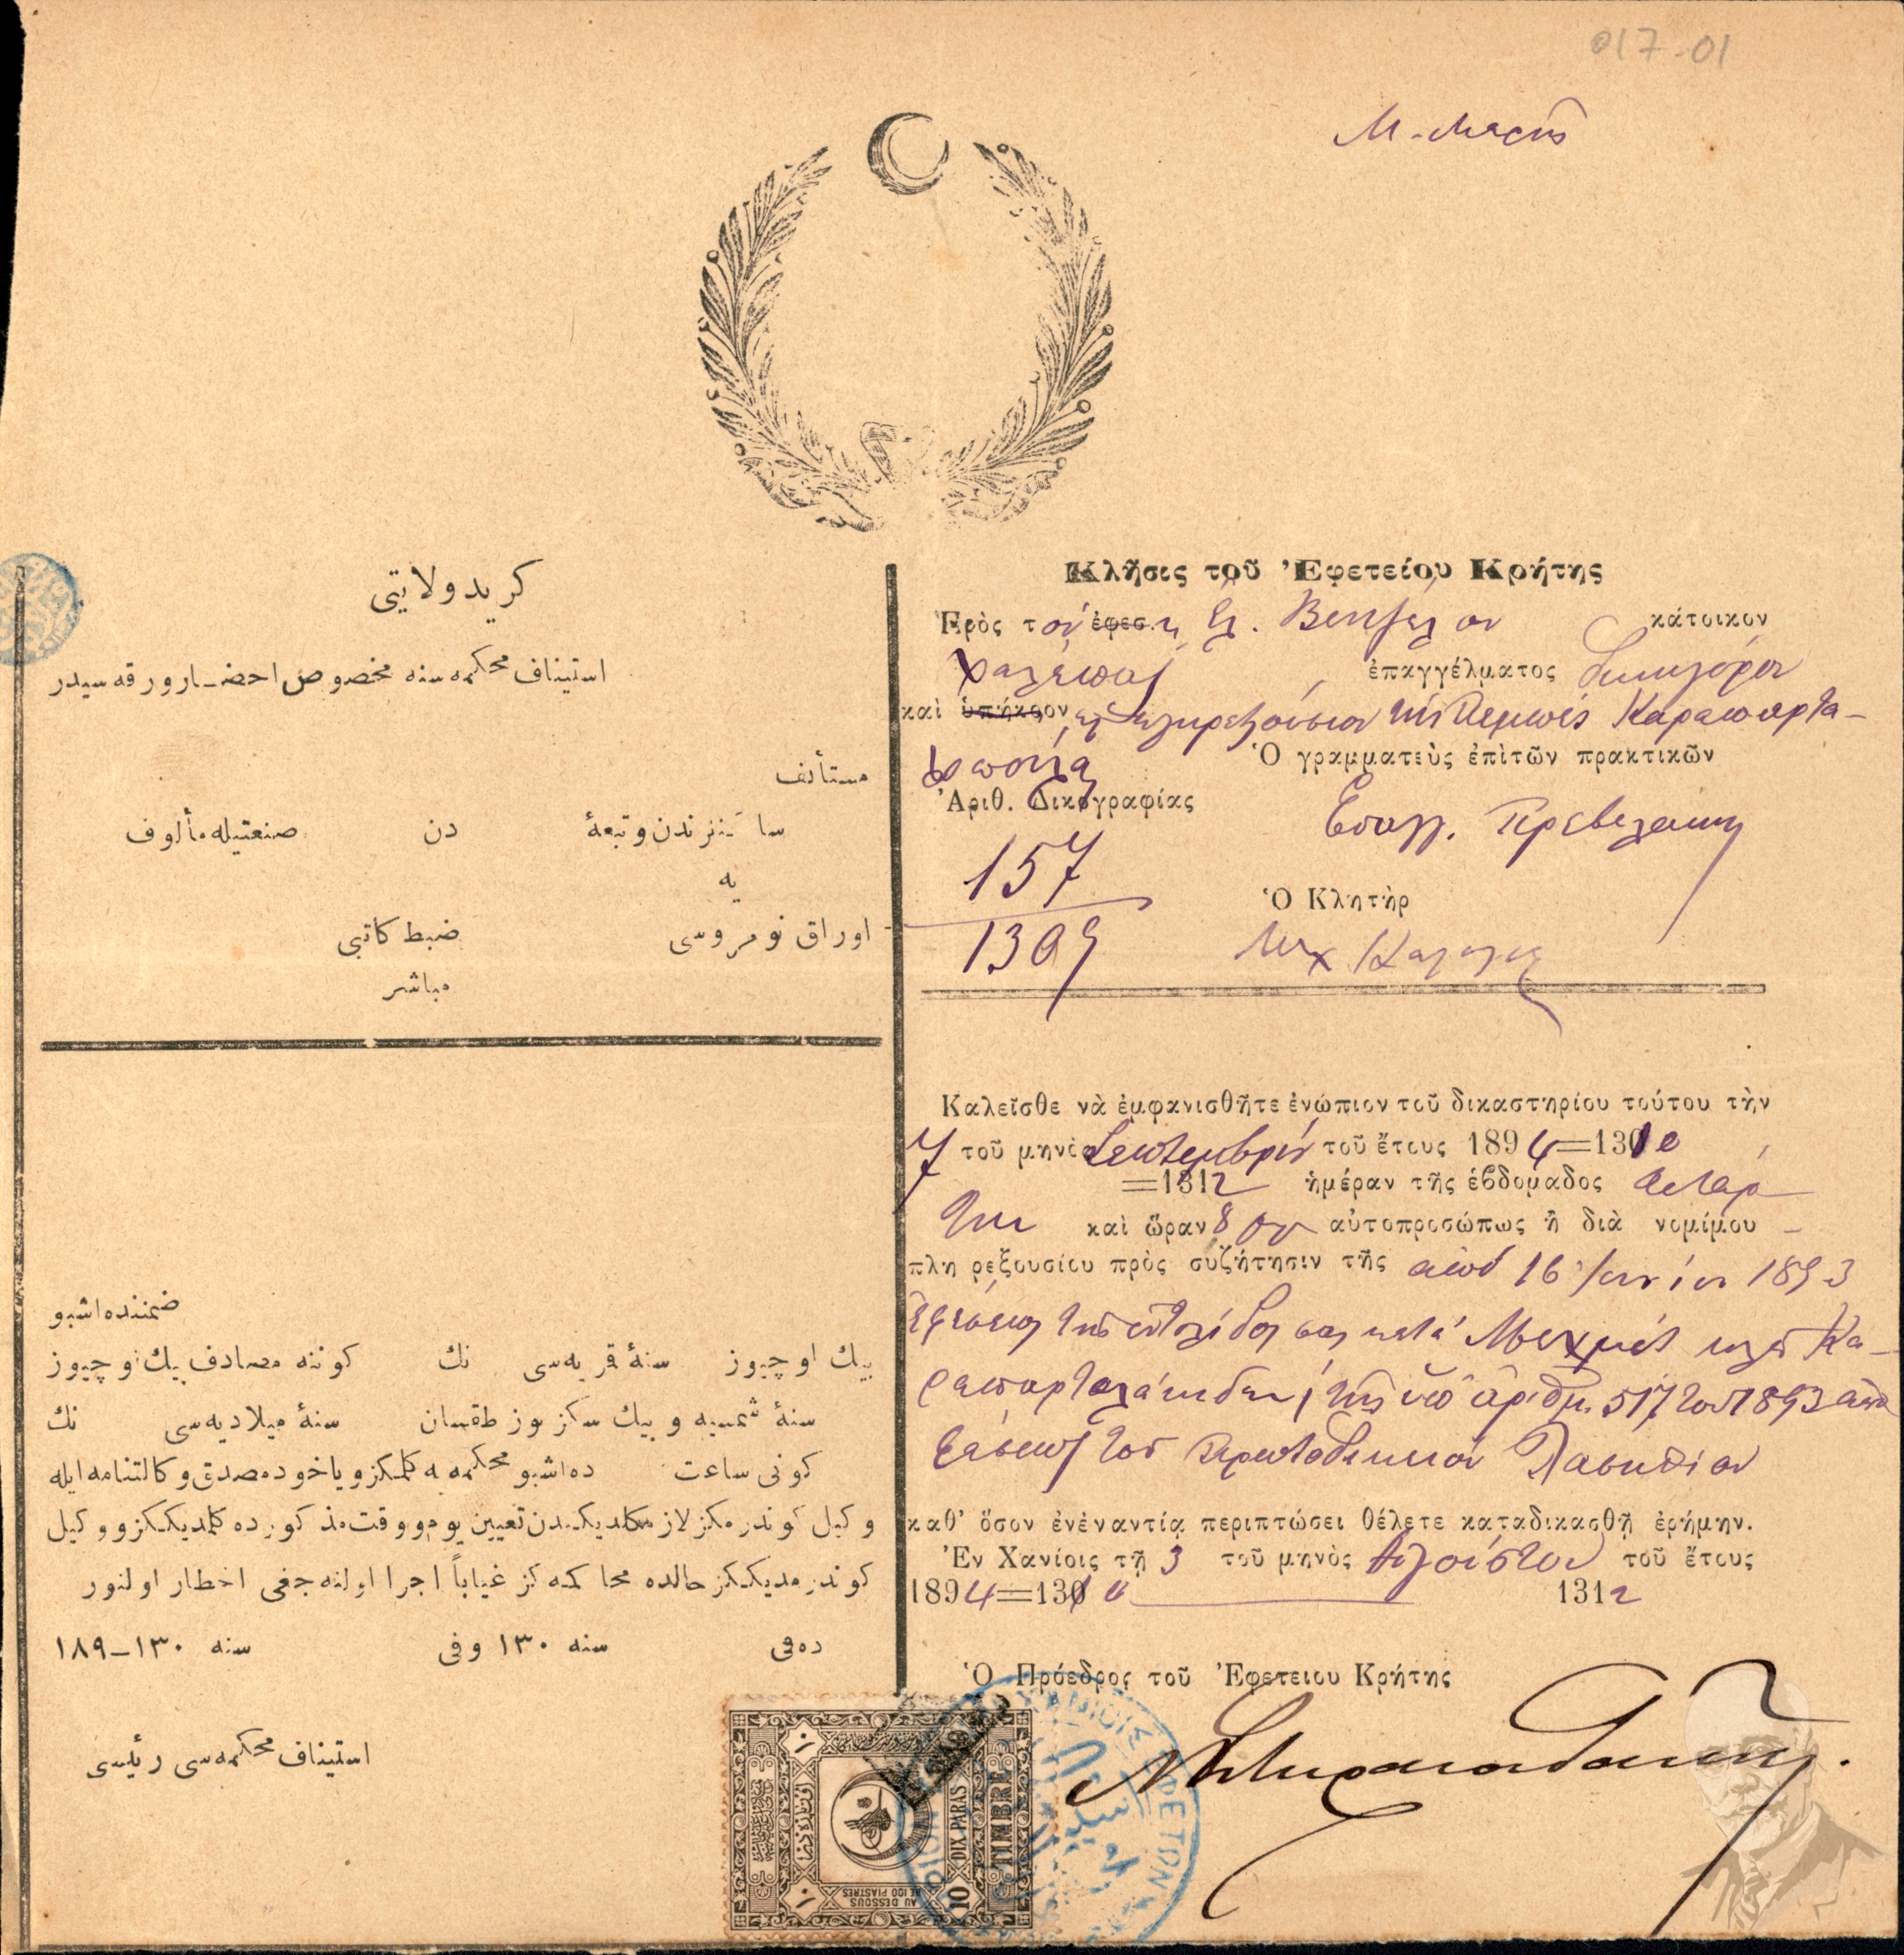 017-01
كريد ولايتى
استيناف محكمه سنه مخصوص احضار ورقه سيدر
مستأنف
ساكنلرندن وتبعهٔ دن صنعتيله مألوف
يه
اوراق نومروسى ضبط كاتبى
مباشر
ضمننده اشبو
بيك اوچيوز سنهٔ قريه سى نك كوننه مصادف بيك اوچيوز
سنهٔ شمسيه و بيك سكز يوز طقسان سنهٔ ميلاديه سى نك
كونى ساعت ده اشبو محكمه يه كلمكز وياخود مصدق وكالتنامه ايله
وكيل كوندرمكز لازمكلديكندن تعيين يوم ووقت مذكورده كلمديككز و وكيل
كوندرمديككز حالده محاكمه كز غياباً اجرا اولنه جغى اخطار اولنور
ده فى سنه ١٣٠ وفى سنه ١٣٠-١٨٩
استيناف محكمه سى رئيسى
Κλῆσις τοῦ Ἐφετείου Κρήτης
Πρὸς τὸν ἐφεσ. Ἐλ. Βενιζέλον κάτοικον
Χαλέπας ἐπαγγέλματος δικηγόρον
καὶ ὑπήκοον πληρεξούσιον τῆς Καραπαρτα-
Ὁ γραμματεὺς ἐπὶ τῶν πρακτικῶν
Ἀριθ. Δικογραφίας
Εὐαγγ. Πρεβελάκης
157
1309
Ὁ Κλητὴρ
Καλεῖσθε νὰ ἐμφανισθῆτε ἐνώπιον τοῦ δικαστηρίου τούτου τὴν
7 τοῦ μηνὸς Σεπτεμβρίου τοῦ ἔτους 1894=1310
=1312 ἡμέραν τῆς ἑβδομάδος Τετάρ
την καὶ ὥραν 8 αὐτοπροσώπως ἢ διὰ νομίμου
πληρεξουσίου πρὸς συζήτησιν τῆς ἀπὸ 16 Ἰουνίου 1893
ἐφέσεως τῆς ἐντολίδος σας κατὰ Μεχμὲτ Κα-
ραπαρταλάκηδων, τῆς ὑπ' ἀριθμ. 517 τοῦ 1893 ἀπο
φάσεως τοῦ Πρωτοδικείου Λασηθίου
καθ' ὅσον ἐν ἐναντίᾳ περιπτώσει θέλετε καταδικασθῆ ἐρήμην.
Ἐν Χανίοις τῇ 3 τοῦ μηνὸς Αὐγούστου τοῦ ἔτους
1894=1310 1312
Ὁ Πρόεδρος τοῦ Ἐφετειου Κρήτης
TIMBRE
10 DIX PARAS
AU DESSOUS
DE 100 PIASTRES